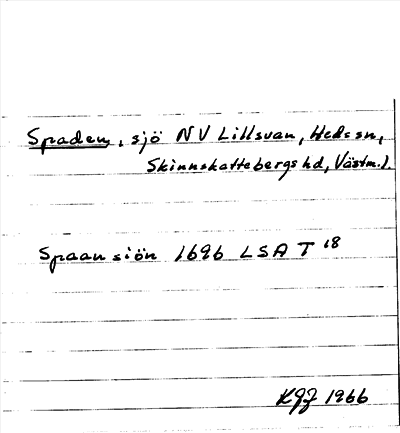 Spaden, sjö NV Lillsvan, Heds sn,
Skinnskattebergs hd, Västm.l.
Spaan siön 1696 LSA T 18
KGJ 1966